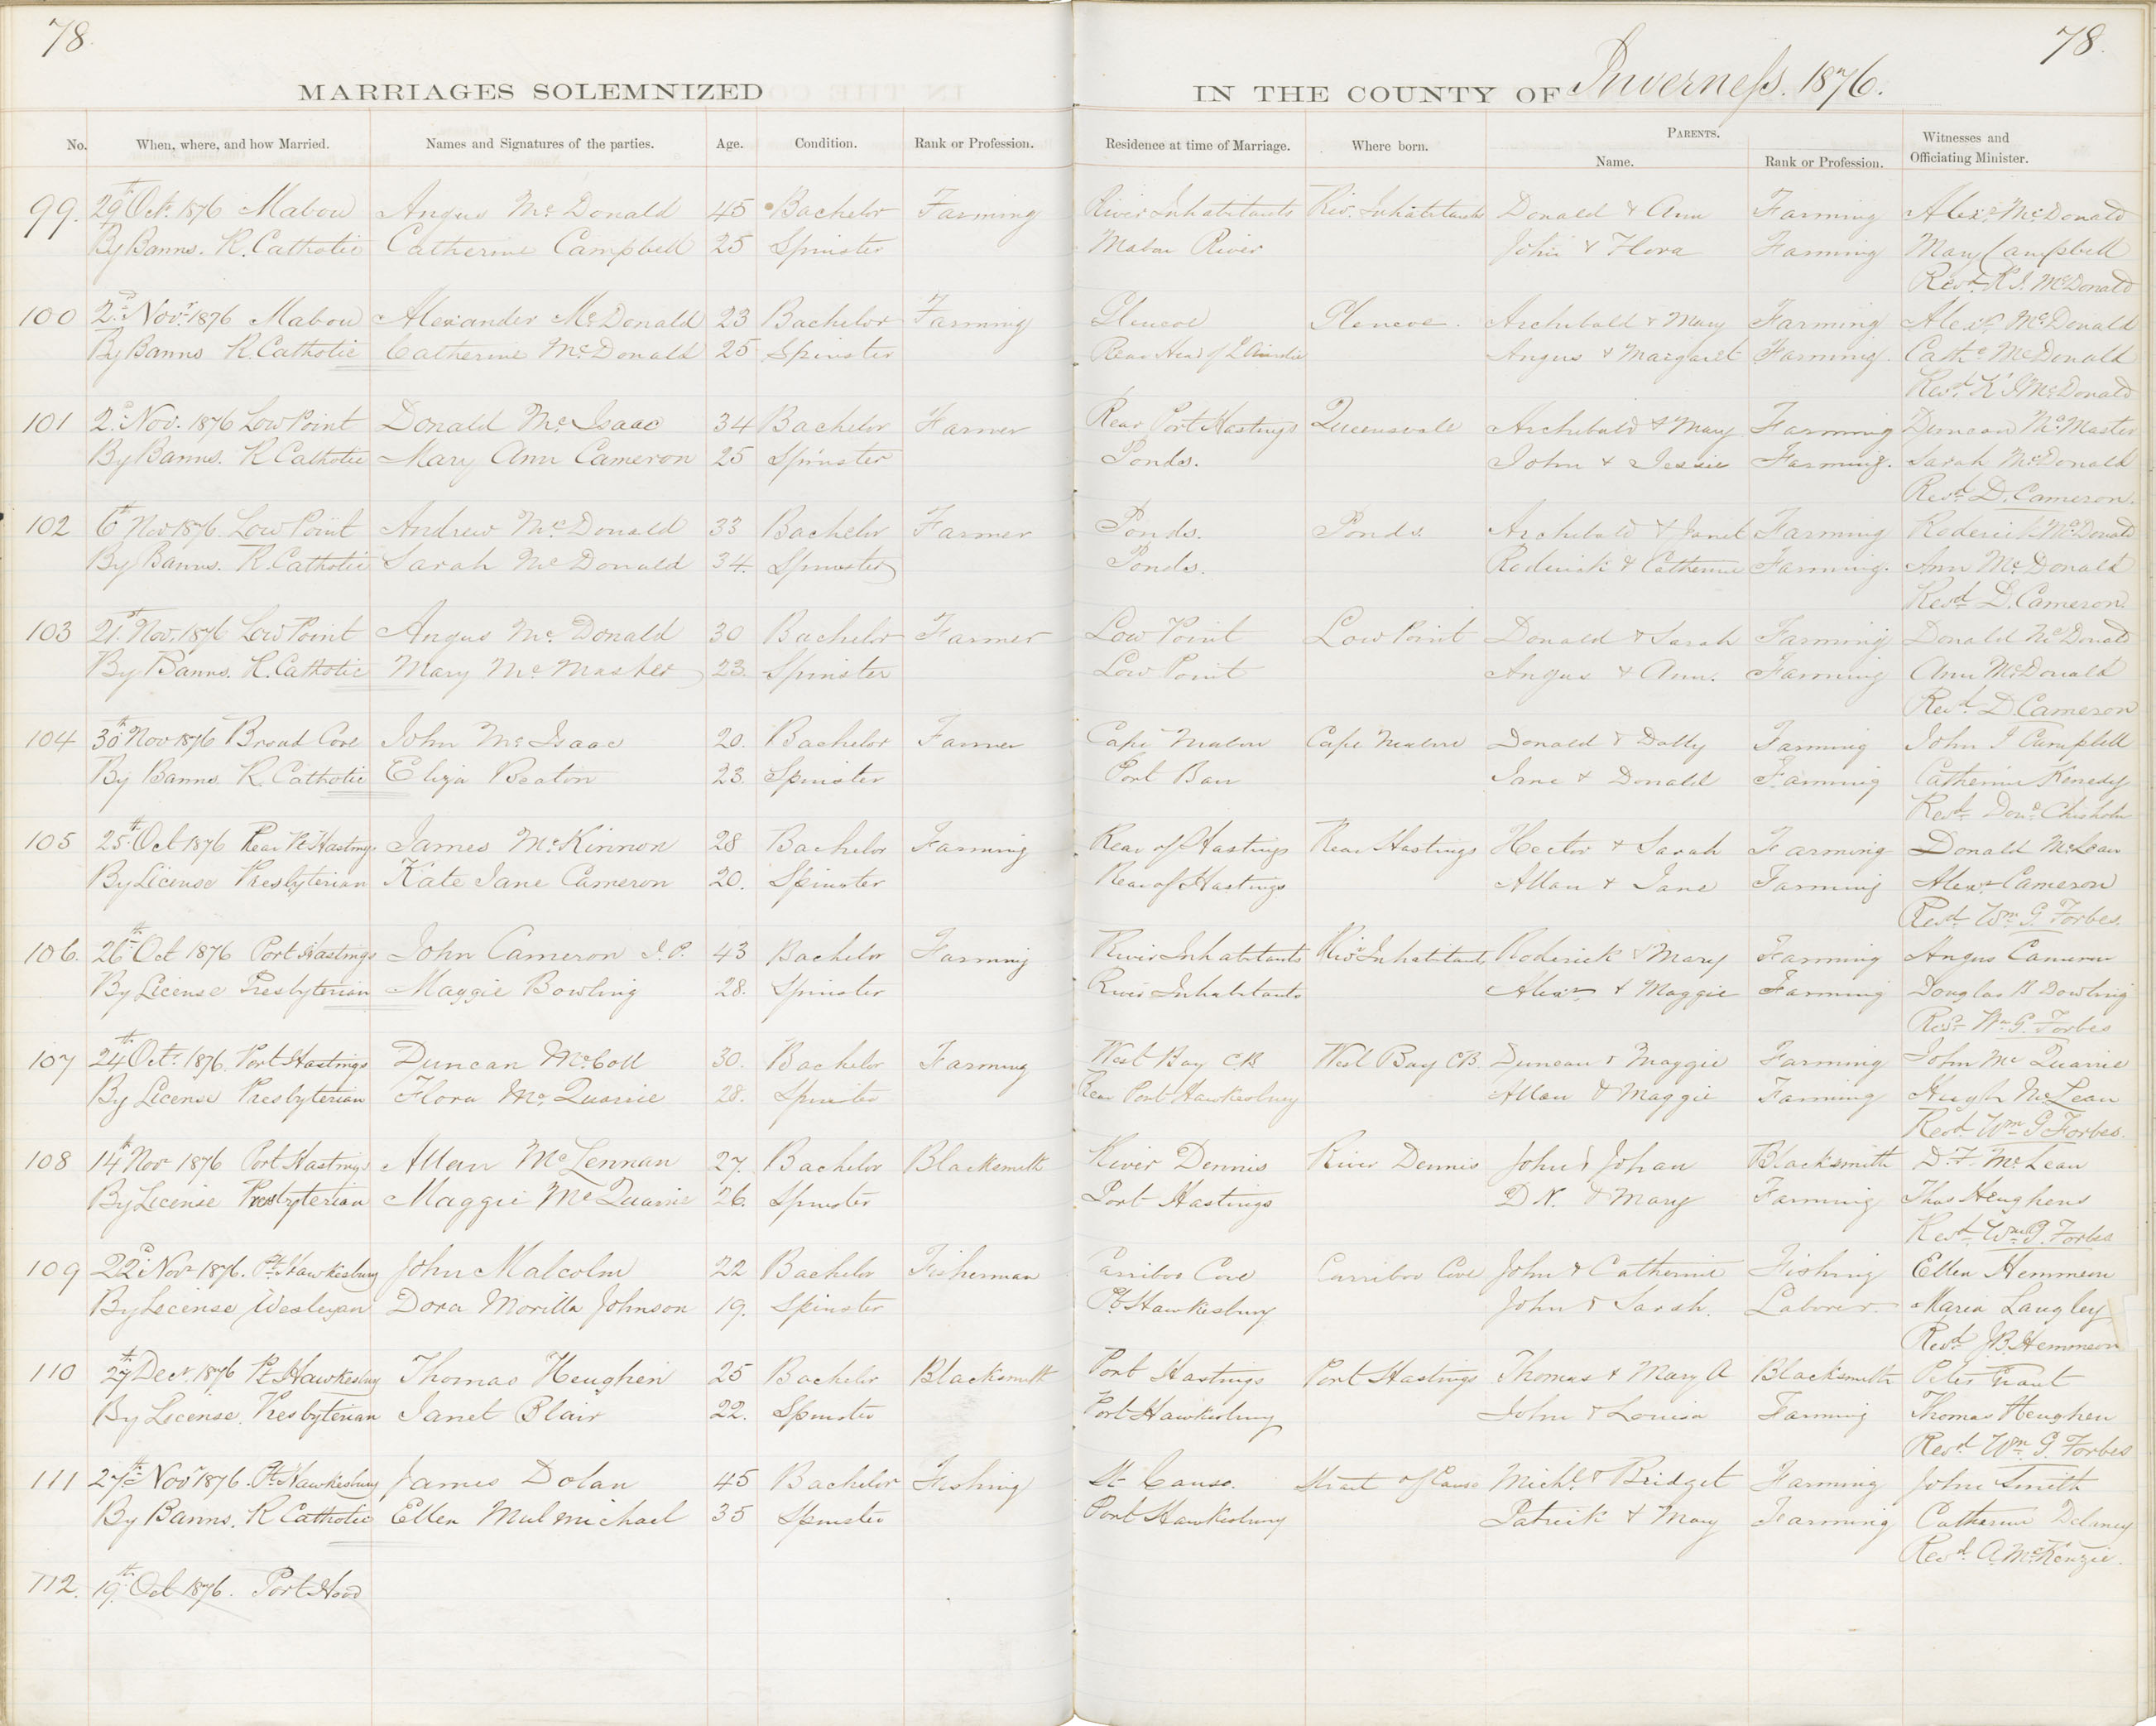 78. 78.
MARRIAGES SOLEMNIZED IN THE COUNTY OF Inverness. 1876.
No. When, where, and how Married. Names and Signatures of the parties. Age. Condition. Rank or Profession. Residence at time of Marriage. Where born. PARENTS. Witnesses and
Name. Rank or Profession. Officiating Minister.
99. 29th Oct. 1876 Mabou Angus Mc Donald 45 Bachelor Farming River Inhabitants Riv. Inhabitants Donald & Ann Farming Alexr McDonald
By Banns. R. Catholic Catherine Campbell 25 Spinster Mabou River John & Flora Farming Mary Campbell
Revd K. J. McDonald
100 2d Novr 1876 Mabou Alexander McDonald 23 Bachelor Farming Glencoe Glencoe. Archibald & Mary Farming Alexr McDonald
By Banns R. Catholic Catherine McDonald 25 Spinster Rear Head of L Ainslie Angus & Margaret Farming. Cathe McDonald
Revd K J McDonald
101 2d Nov. 1876 Low Point Donald Mc Isaac 34 Bachelor Farmer Rear Port Hastings Queensvale Archibald & Mary Farming Duncan McMaster
By Banns. R Catholic Mary Ann Cameron 25 Spinster Ponds. John & Jessie Farming. Sarah McDonald
Revd D. Cameron.
102 6th Nov 1876 Low Point Andrew McDonald 33 Bachelor Farmer Ponds. Ponds. Archibald & Janet Farming Roderick McDonald
By Banns. R. Catholic Sarah McDonald 34. Spinster Ponds. Roderick & Catherine Farming. Ann McDonald
Revd D. Cameron.
103 21st Nov. 1876 Low Point Angus Mc Donald 30 Bachelor Farmer Low Point Low Point Donald & Sarah Farming Donald McDonald
By Banns. R. Catholic Mary Mc Master 23. Spinster Low Point Angus & Ann. Farming Ann McDonald
Revd D Cameron
104 30th Nov 1876 Broad Cove John McIsaac 20. Bachelor Farmer Cape Mabou Cape Mabou Donald & Dolly Farming John J Campbell
By Banns. R. Catholic Eliza Beaton 23. Spinster Port Ban Jane & Donald Farming Catherine Kenedy
Revd Dond Chisholm
105 25th Oct 1876 Rear Pt Hastings James McKinnon 28 Bachelor Farming Rear of Hastings Rear Hastings Hector & Sarah Farming Donald McLean
By License Presbyterian Kate Jane Cameron 20. Spinster Rear of Hastings Allan & Jane Farming Alexr Cameron
Revd Wm G. Forbes.
106. 26th Oct 1876 Port Hastings John Cameron J. P. 43 Bachelor Farming River Inhabitants Riv Inhabitants Roderick & Mary Farming Angus Cameron
By License Presbyterian Maggie Bowling 28. Spinster River Inhabitants Alexr & Maggie Farming Douglas B Dowling
Revd Wm G. Forbes
107 24th Octr 1876. Port Hastings Duncan McColl 30. Bachelor Farming West Bay CB West Bay CB. Duncan & Maggie Farming John Mc Quarrie
By License Presbyterian Flora Mc Quarrie 28. Spinster Rear Port Hawkesbury Allan & Maggie Farming Hugh McLean
Revd Wm G Forbes.
108 14th Novr 1876 Port Hastings Allan McLennan 27. Bachelor Blacksmith River Dennis River Dennis John & Johan Blacksmith D. F. McLean
By License Presbyterian Maggie McQuarrie 26. Spinster Port Hastings D N. & Mary Farming Thos Heughens
Revd Wm G. Forbes
109 22d Novr 1876. Pt Hawkesbury John Malcolm 22 Bachelor Fisherman Carriboo Cove Carriboo Cove John & Catherine Fishing Ellen Hemmeon
By License Wesleyan Dora Morilla Johnson 19. Spinster Pt Hawkesbury John & Sarah. Laborer. Maria Langley
Revd J.B. Hemmeon
110 27th Decr 1876 Pt Hawkesbury Thomas Heughen 25 Bachelor Blacksmith Port Hastings Port Hastings Thomas & Mary A Blacksmith Peter Grant
By License. Presbyterian Janet Blair 22. Spinster Port Hawkesbury John & Louisa Farming Thomas Heughen
Revd Wm G Forbes
111 27th Novr 1876. Pt Hawkesbury James Dolan 45 Bachelor Fishing St Canso. Strait of Canso Michl & Bridget Farming John Smith
By Banns. R Catholic Ellen Mulmichael 35 Spinster Port Hawkesbury Patrick & Mary Farming Catherine Delaney
Revd A McKenzie.
112. 19th Oct 1876. Port Hood